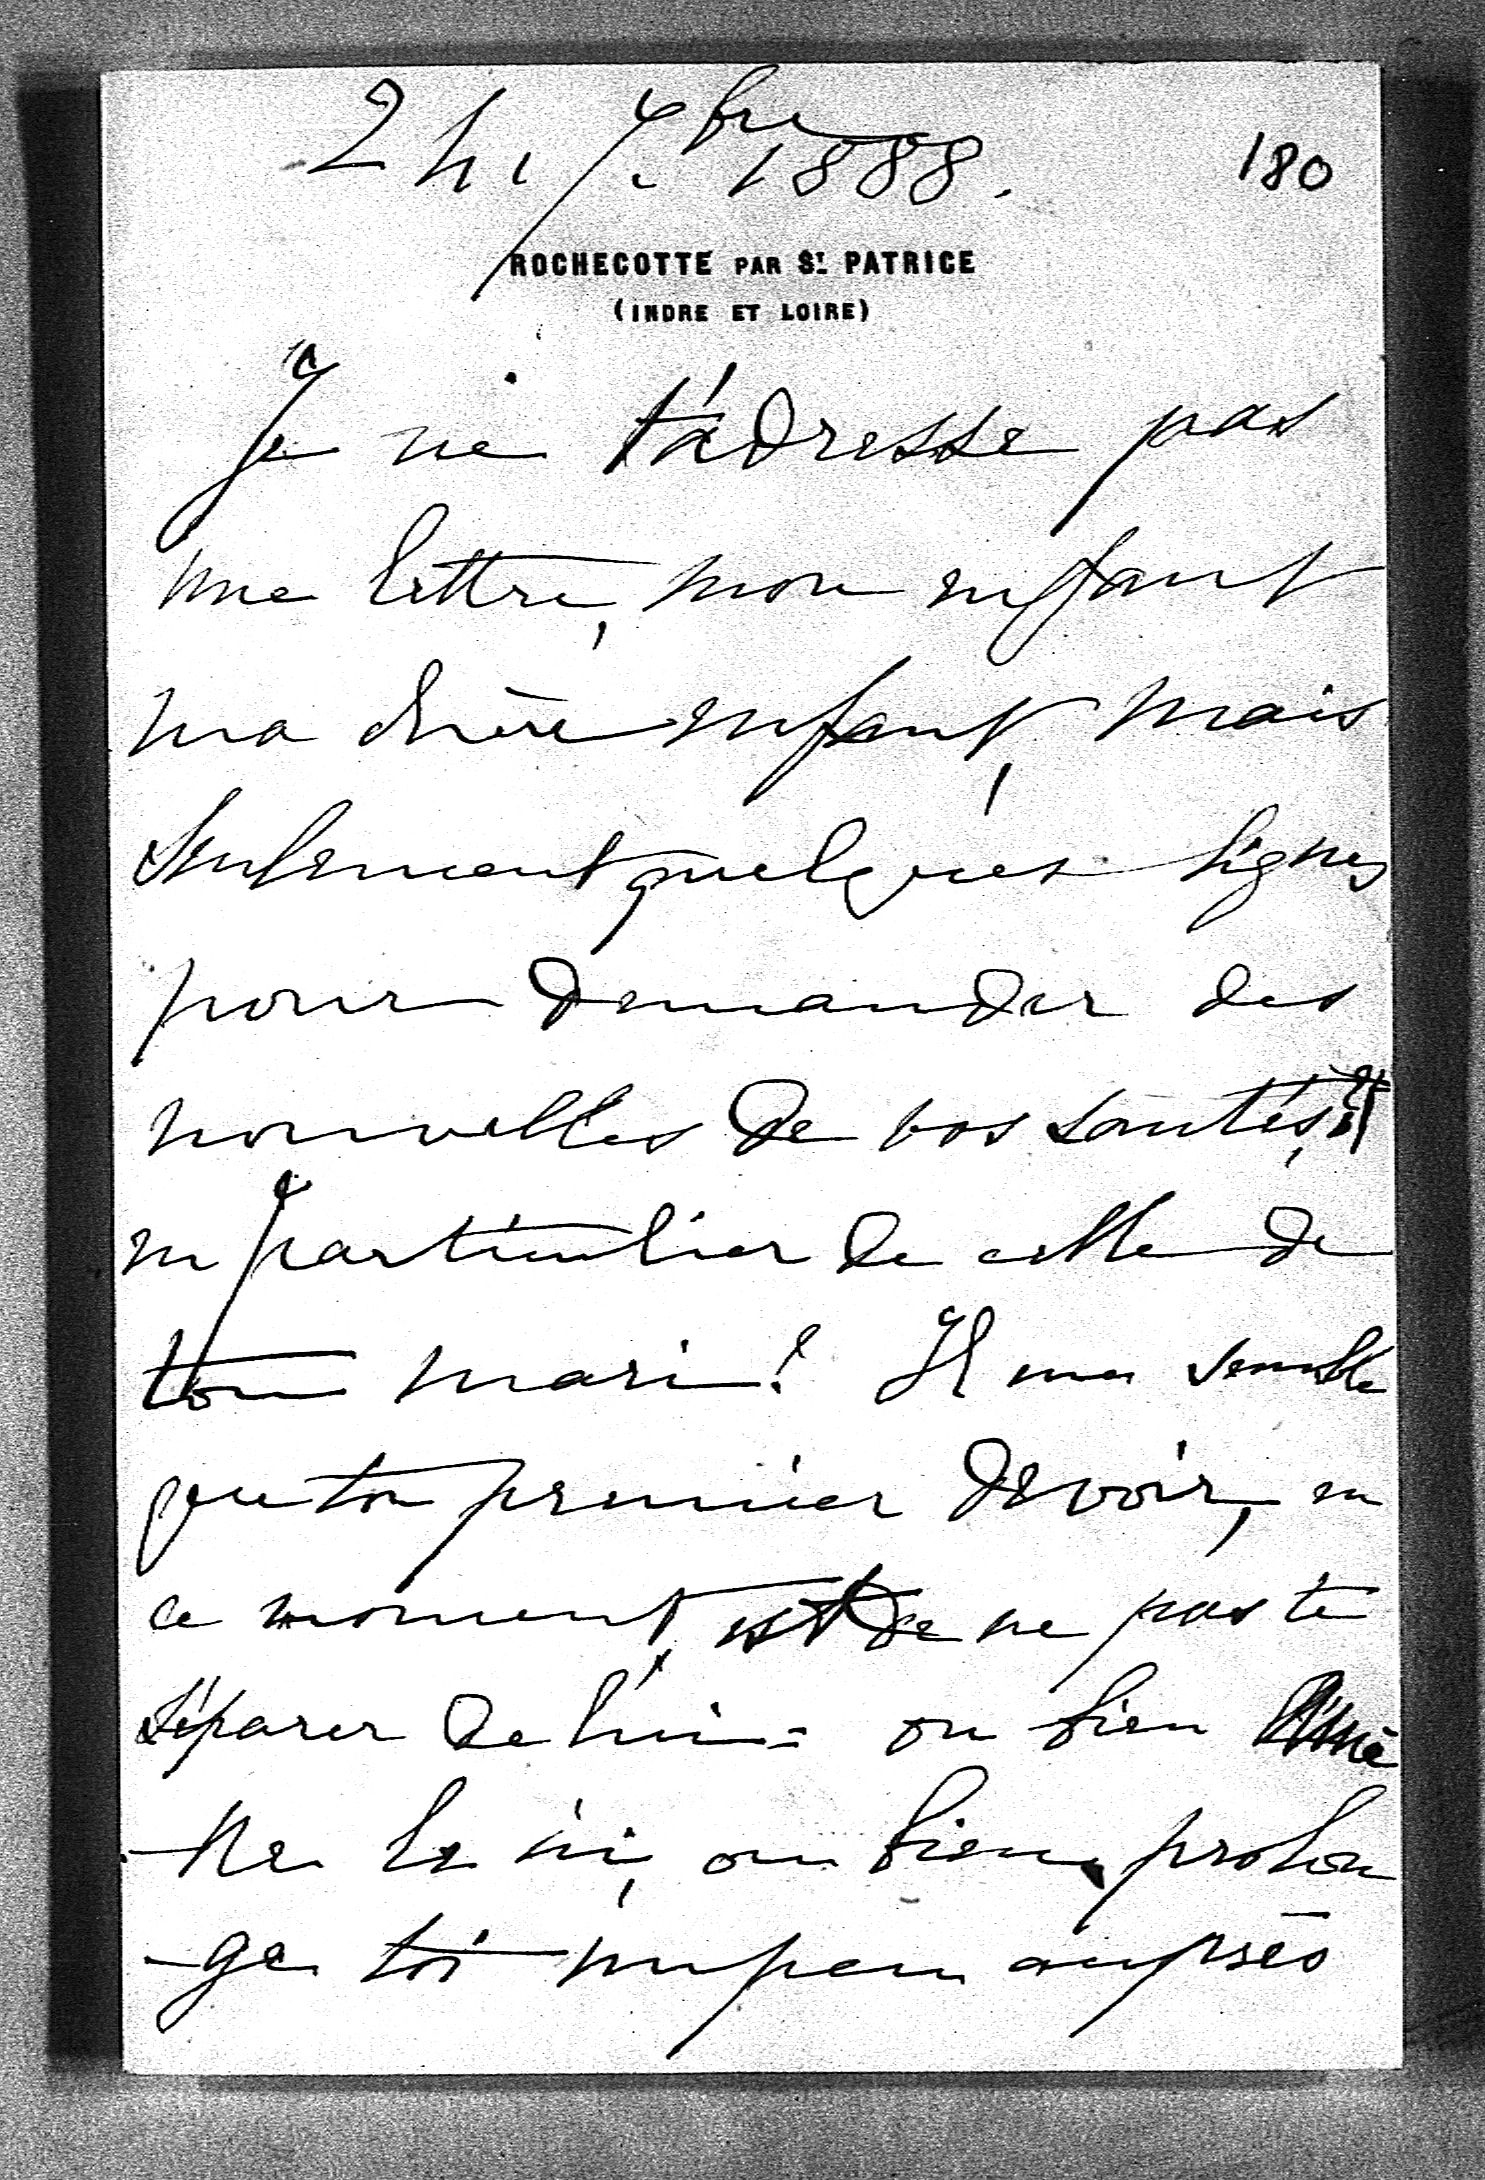 24, 7bre 1888.
180
ROCHECOTTE PAR ST. PATRICE
(INDRE ET LOIRE)
Je ne t'adresse pas
une lettre, mon enfant
ma chère enfant, mais
seulement quelques lignes
pour demander des
nouvelles de vos santés, et
en particulier de celle de
ton mari! Il me semble
que ton premier devoir, en
ce moment, est de ne pas te
séparer de lui = ou bien amè
-ne le ici, ou bien prolon
-ge toi un peu auprès